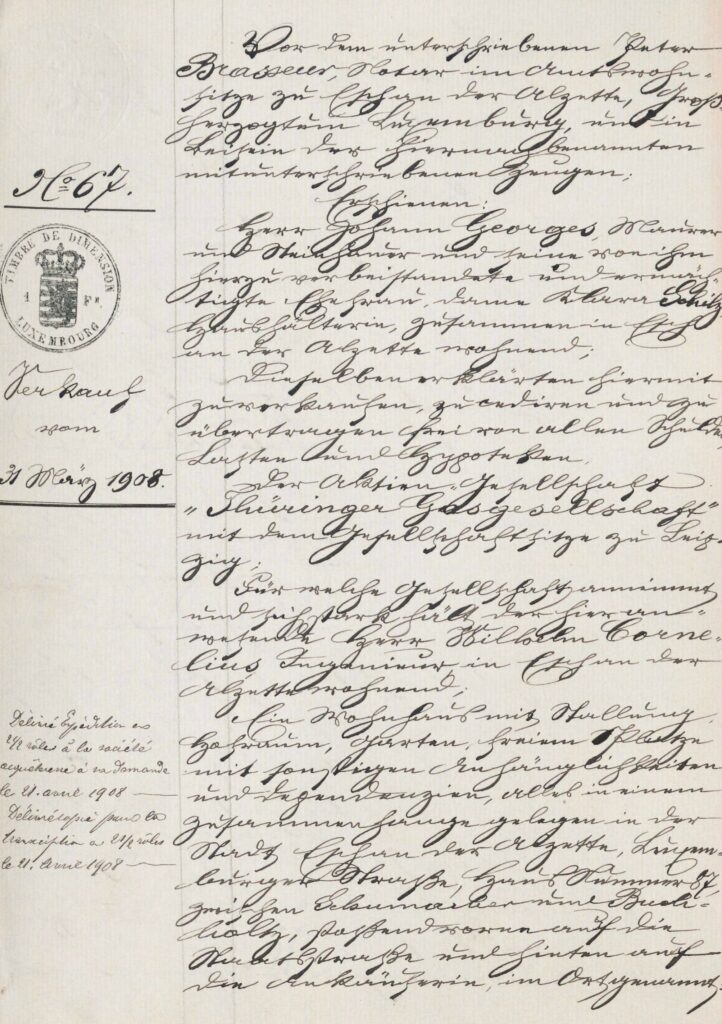 No 67.
TIMBRE DE DIMENSION
1 Fr.
LUXEMBOURG
Verkauf
vom
31 März 1908.
Délivré Expédition en
2 1/2 rôles à la société
acquéreuse à sa demande
le 21. avril 1908 —
Délivré copie pour la
transcription a 2 1/2 rôles
le 21. Avril 1908 —
Vor dem unterschriebenen Peter
Brasseur, Notar im Amtswohn-
sitze zu Esch an der Alzette, Groß-
herzogtum Luxemburg, und in
Beisein der hiernachbenannten
mitunterschriebenen Zeugen;
Erschienen:
Herr Johann Georges, Maurer
und Steinhauer und seine von ihm
hierzu verbeistandete und ermäch-
tigte Ehefrau, dame Klara Schütz
Haushälterin, zusammen in Esch
an der Alzette wohnend;
Dieselben erklärten hiermit
zu verkaufen, zu cediren und zu
übertragen frei von allen Schulden,
Lasten und Hypoteken,
Der Aktien-Gesellschaft
„Thüringer Gasgesellschaft“
mit dem Gesellschaftssitze zu Leip-
zig;
Für welche Gesellschaft annimmt
und sich stark hält der hier an-
wesende Herr Wilhelm Corne-
lius Ingenieur in Esch an der
Alzette wohnend;
Ein Wohnhaus mit Stallung,
Hofraum, Garten, freiem Platze
mit sonstigen Anhänglichkeiten
und Dependenzien, alles in einem
Zusammenhange gelegen in der
Stadt Esch an der Alzette, Luxem-
burger Straße, Haus Nummer 87,
zwischen Schumacher und Buch-
holtz, stoßend vorne auf die
Staatsstraße und hinten auf
die Ankäuferin, im Ort genannt